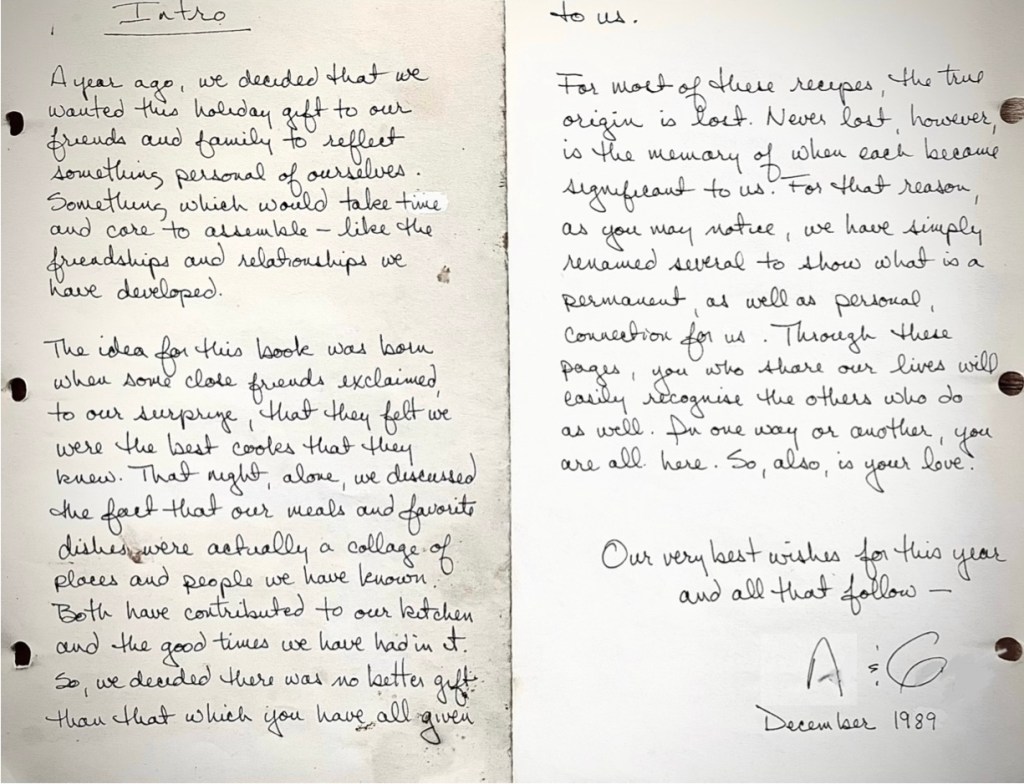 Intro
A year ago, we decided that we
wanted this holiday gift to our
friends and family to reflect
something personal of ourselves.
Something which would take time
and care to assemble – like the
friendships and relationships we
have developed.
The idea for this book was born
when some close friends exclaimed,
to our surprize, that they felt we
were the best cooks that they
knew. That night, alone, we discussed
the fact that our meals and favorite
dishes were actually a collage of
places and people we have known.
Both have contributed to our kitchen
and the good times we have had in it.
So, we decided there was no better gift
than that which you have all given
to us.
For most of these recipes, the true
origin is lost. Never lost, however,
is the memory of when each became
significant to us. For that reason,
as you may notice, we have simply
renamed several to show what is a
permanent, as well as personal,
connection for us. Through these
pages, you who share our lives will
easily recognise the others who do
as well. In one way or another, you
are all here. So, also, is your love.
Our very best wishes for this year
and all that follow —
A & G
December 1989